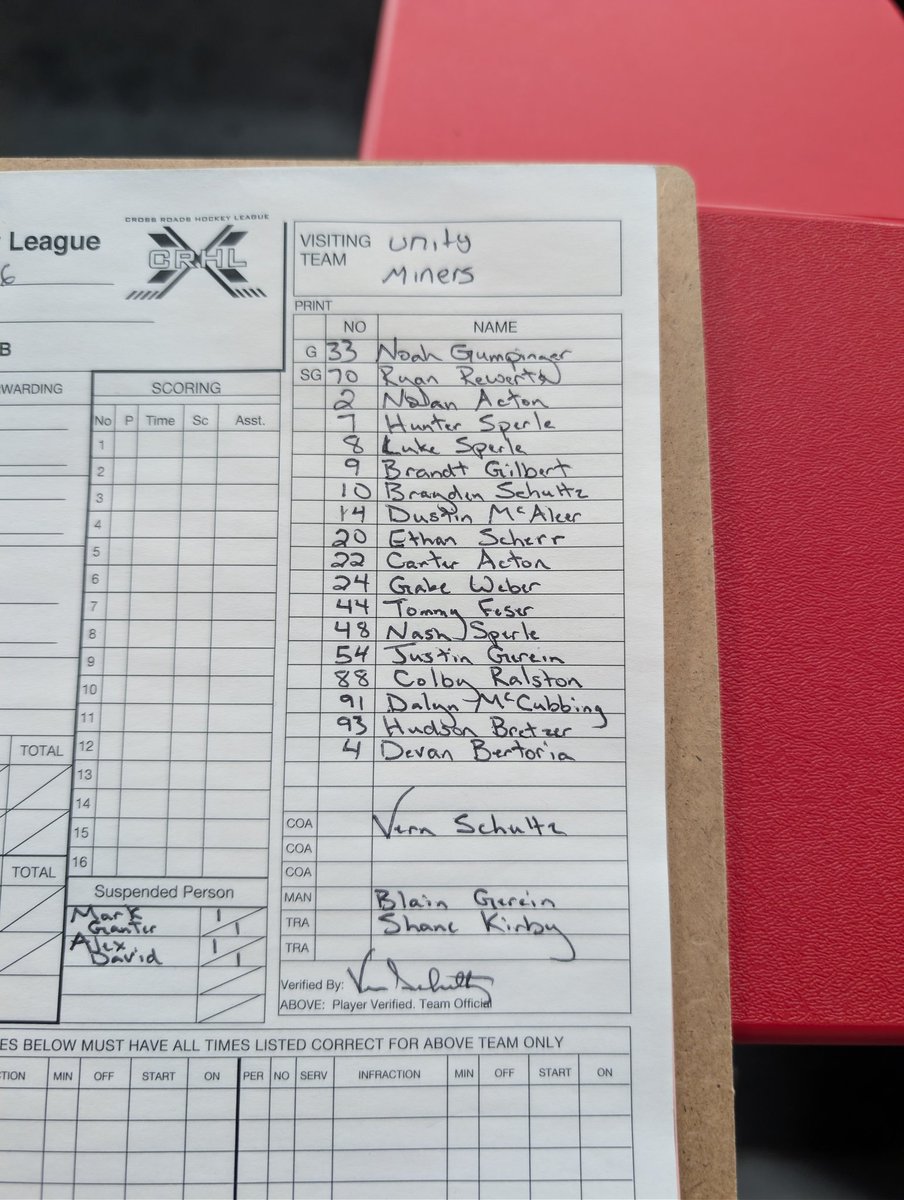 CROSS ROADS HOCKEY LEAGUE
League
CRHL
6
B
VISITING TEAM Unity Miners
PRINT
NO NAME
G 33 Noah Gumpinger
SG 70 Ryan Rewerts
2 Nolan Acton
7 Hunter Sperle
8 Luke Sperle
9 Brandt Gilbert
10 Brayden Schultz
14 Dustin McAleer
20 Ethan Scherr
22 Carter Acton
24 Gabe Weber
44 Tommy Feser
48 Nash Sperle
54 Justin Gerein
88 Colby Ralston
91 Dalyn McCubbing
93 Hudson Bretzer
4 Devan Bertoria
COA Vern Schultz
COA
COA
MAN Blain Gerein
TRA Shane Kirby
TRA
Verified By: Vern Schultz
ABOVE: Player Verified. Team Official
WARDING
SCORING
No P Time Sc Asst.
1
2
3
4
5
6
7
8
9
10
11
12
13
14
15
16
TOTAL
TOTAL
Suspended Person
Mark Ganter 1 1
Alex David 1 1
ES BELOW MUST HAVE ALL TIMES LISTED CORRECT FOR ABOVE TEAM ONLY
TION MIN OFF START ON PER NO SERV INFRACTION MIN OFF START ON